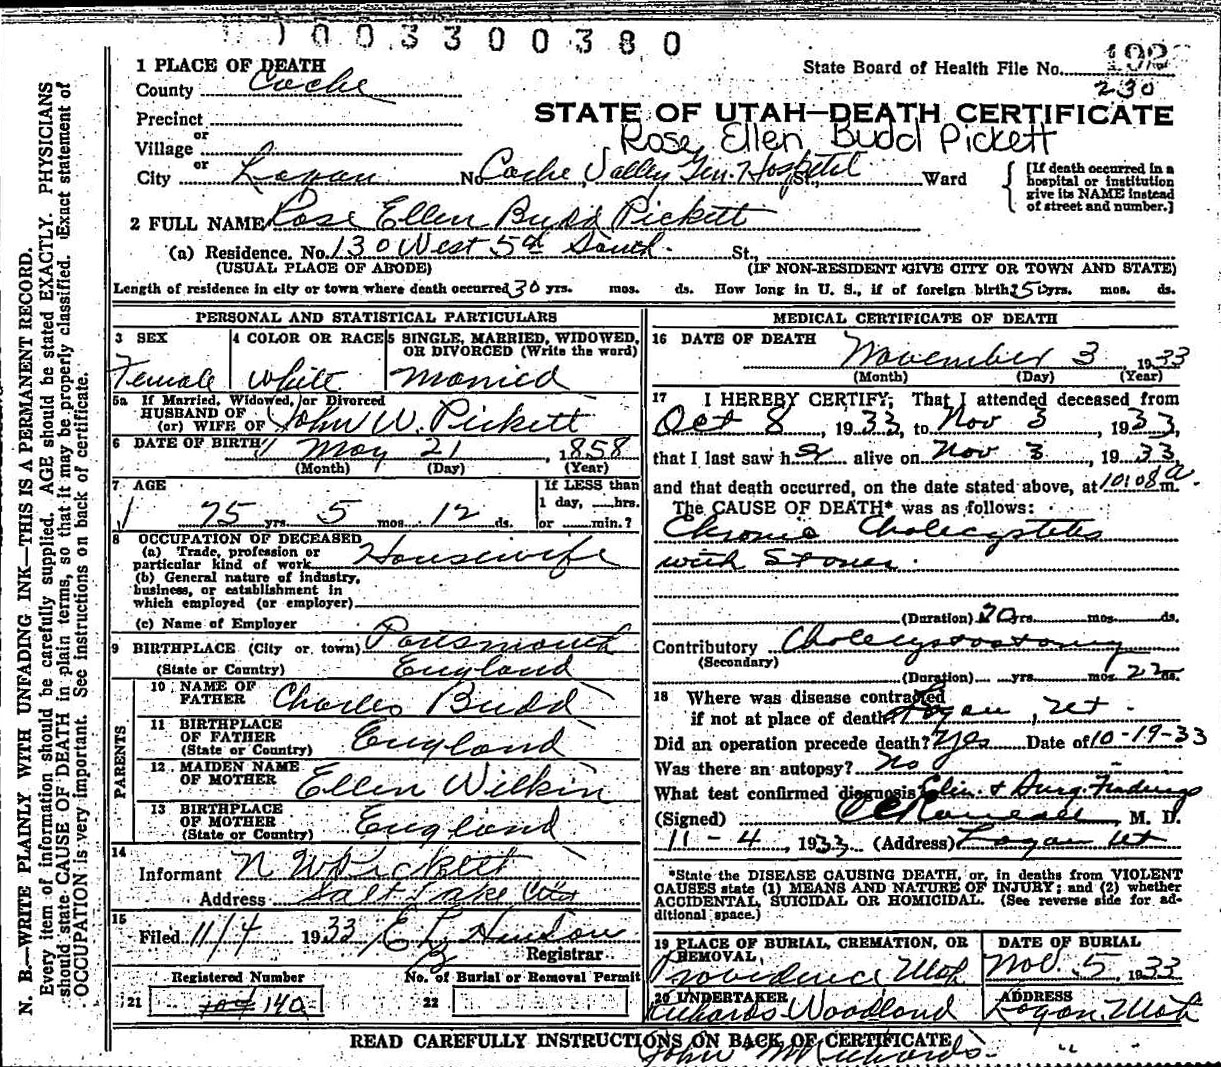 1003300380
1 PLACE OF DEATH
County Cache
State Board of Health File No.
230
Precinct
or
STATE OF UTAH—DEATH CERTIFICATE
Rose Ellen Budd Pickett
Village
or
City Logan No. Cache Valley Gen. Hospital St., Ward
[If death occurred in a
hospital or institution
give its NAME instead
of street and number.]
2 FULL NAME Rose Ellen Budd Pickett
(a) Residence. No. 130 West 5th South St.,
(USUAL PLACE OF ABODE) (IF NON-RESIDENT GIVE CITY OR TOWN AND STATE)
Length of residence in city or town where death occurred 30 yrs. mos. ds. How long in U. S., if of foreign birth? 50 yrs. mos. ds.
PERSONAL AND STATISTICAL PARTICULARS
3 SEX 4 COLOR OR RACE 5 SINGLE, MARRIED, WIDOWED,
OR DIVORCED (Write the word)
Female White Married
5a If Married, Widowed, or Divorced
HUSBAND OF
(or) WIFE OF John W. Pickett
6 DATE OF BIRTH May 21, 1858
(Month) (Day) (Year)
7 AGE If LESS than
1 day, hrs.
75 yrs. 5 mos. 12 ds. or min.?
8 OCCUPATION OF DECEASED
(a) Trade, profession or
particular kind of work Housewife
(b) General nature of industry,
business, or establishment in
which employed (or employer)
(c) Name of Employer
9 BIRTHPLACE (City or town) Portsmouth
(State or Country) England
PARENTS
10 NAME OF
FATHER Charles Budd
11 BIRTHPLACE
OF FATHER
(State or Country) England
12 MAIDEN NAME
OF MOTHER Ellen Wilkin
13 BIRTHPLACE
OF MOTHER
(State or Country) England
14
Informant N W Pickett
Address Salt Lake City
15
Filed 11/4 1933
Registrar
Registered Number No. of Burial or Removal Permit
21 140 22
MEDICAL CERTIFICATE OF DEATH
16 DATE OF DEATH
November 3, 1933
(Month) (Day) (Year)
17 I HEREBY CERTIFY; That I attended deceased from
Oct 8, 1933, to Nov 3, 1933,
that I last saw her alive on Nov 3, 1933,
and that death occurred, on the date stated above, at 10:08 a m.
The CAUSE OF DEATH* was as follows:
Chronic Cholecystetes
with Stones.
(Duration) 20 yrs. mos. ds.
Contributory Cholecystostomy
(Secondary)
(Duration) yrs. mos. 22 ds.
18 Where was disease contracted
if not at place of death? Logan, Ut.
Did an operation precede death? Yes Date of 10-19-33
Was there an autopsy? No
What test confirmed diagnosis? Clin. & Surg. Findings
(Signed) M. D.
11-4, 1933 (Address) Logan Ut
*State the DISEASE CAUSING DEATH, or, in deaths from VIOLENT
CAUSES state (1) MEANS AND NATURE OF INJURY; and (2) whether
ACCIDENTAL, SUICIDAL OR HOMICIDAL. (See reverse side for ad-
ditional space.)
19 PLACE OF BURIAL, CREMATION, OR
REMOVAL, DATE OF BURIAL
Providence Utah Nov. 5, 1933
20 UNDERTAKER ADDRESS
Richards Woodland Logan, Utah
READ CAREFULLY INSTRUCTIONS ON BACK OF CERTIFICATE
John M Richards
N. B.—WRITE PLAINLY WITH UNFADING INK—THIS IS A PERMANENT RECORD.
Every item of information should be carefully supplied. AGE should be stated EXACTLY. PHYSICIANS
should state CAUSE OF DEATH in plain terms, so that it may be properly classified. Exact statement of
OCCUPATION is very important. See instructions on back of certificate.